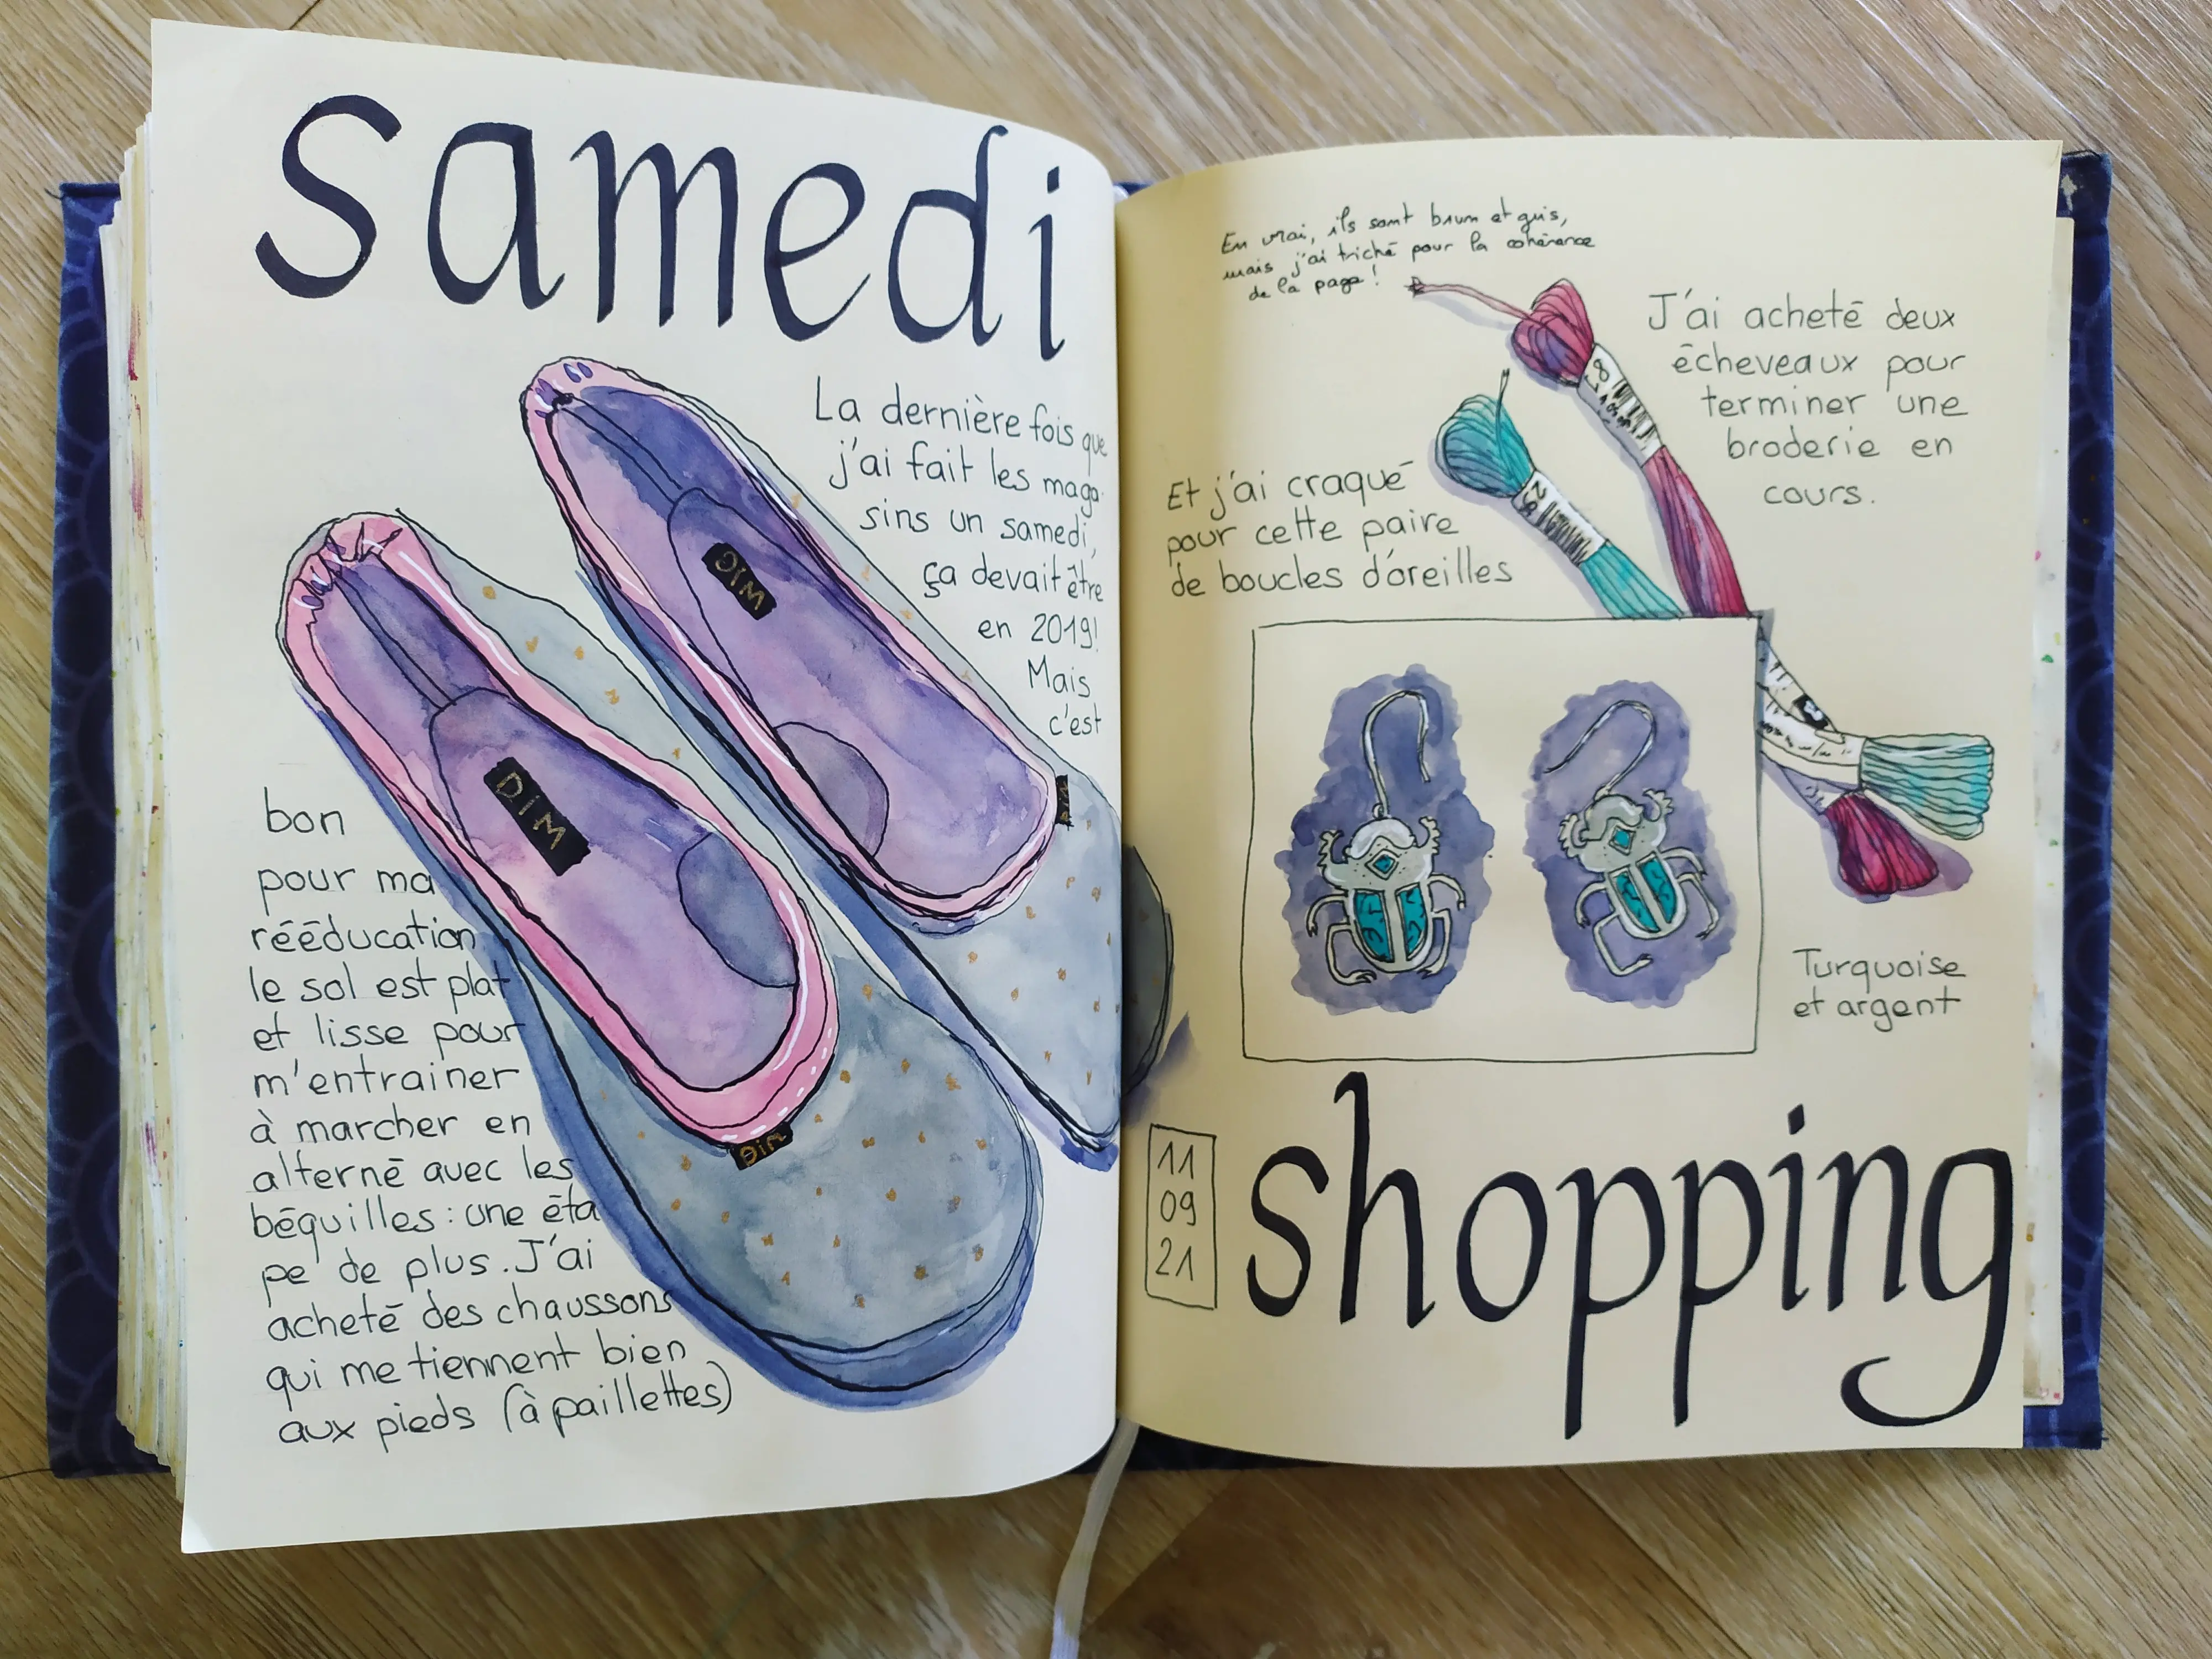 samedi
La dernière fois que
j'ai fait les maga-
sins un samedi,
ça devait être
en 2019!
Mais
c'est
bon
pour ma
rééducation
le sol est plat
et lisse pour
m'entrainer
à marcher en
alterné avec les
béquilles : une éta
pe de plus. J'ai
acheté des chaussons
qui me tiennent bien
aux pieds (à paillettes)
DIM
DIM
Dim
En vrai, ils sont brun et gris,
mais j'ai triché pour la cohérance
de la page!
J'ai acheté deux
écheveaux pour
terminer une
broderie en
cours.
8
25
Et j'ai craqué
pour cette paire
de boucles d'oreilles
Turquoise
et argent
11
09
21
shopping